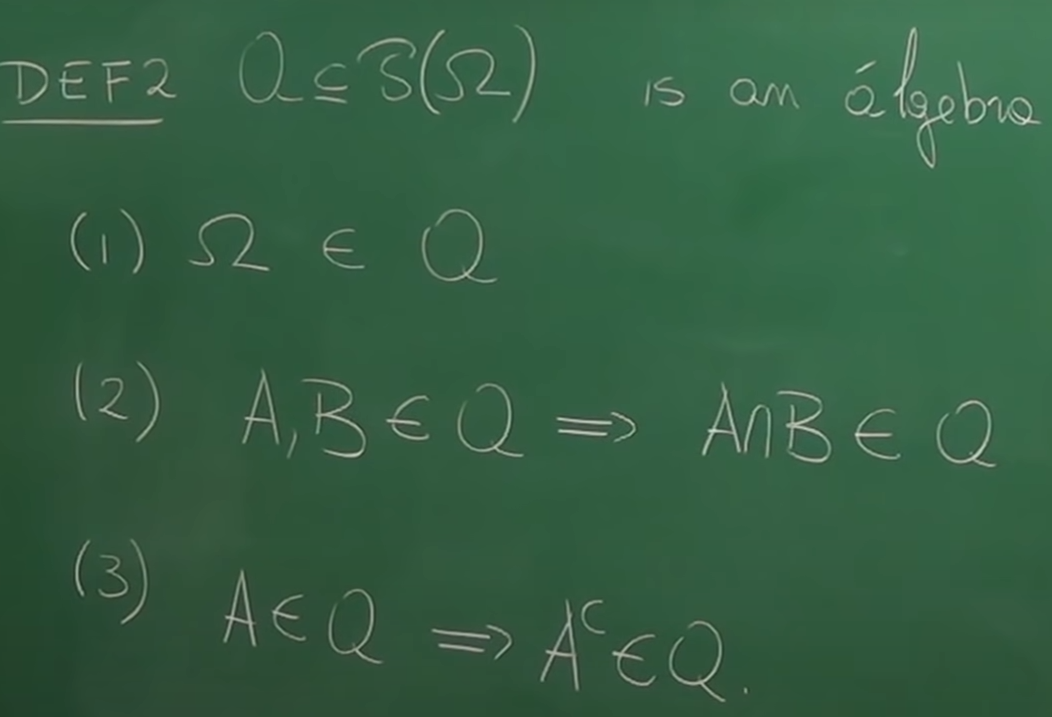 DEF2 Q ⊆ P(Ω) is an álgebra
(1) Ω ∈ Q
(2) A,B ∈ Q ⟹ A∩B ∈ Q
(3) A ∈ Q ⟹ Aᶜ ∈ Q.